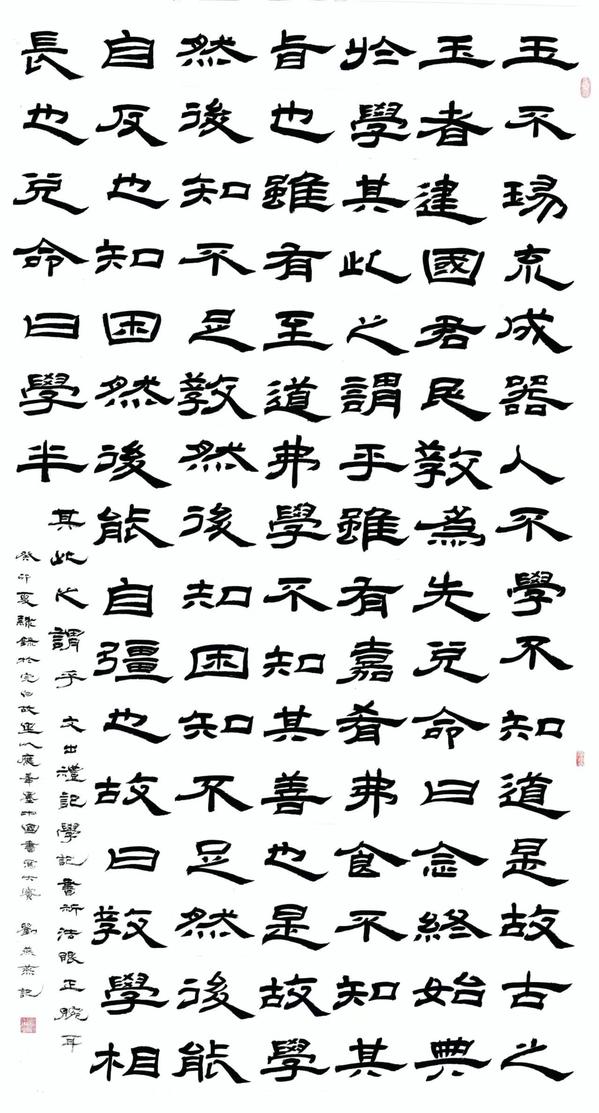 玉不琢不成器人不學不知道是故古之
玉者建國君民教為先兌命曰念終始典
於學其此之謂乎雖有嘉肴弗食不知其
旨也雖有至道弗學不知其善也是故學
然後知不足教然後知困知不足然後能
自反也知困然後能自彊也故曰教學相
長也兌命曰學半
其此之謂乎 文出禮記學記書祈法眼正腕耳
癸卯夏錄於完白故里以應中國書寫大賽 劉燕燕記